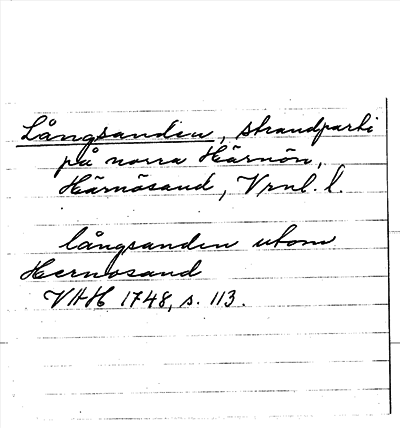 Långsanden, strandparti
på norra Härnön,
Härnösand, Vrnl. l.
långsanden utom
Hernosand
VHH 1748, s. 113.